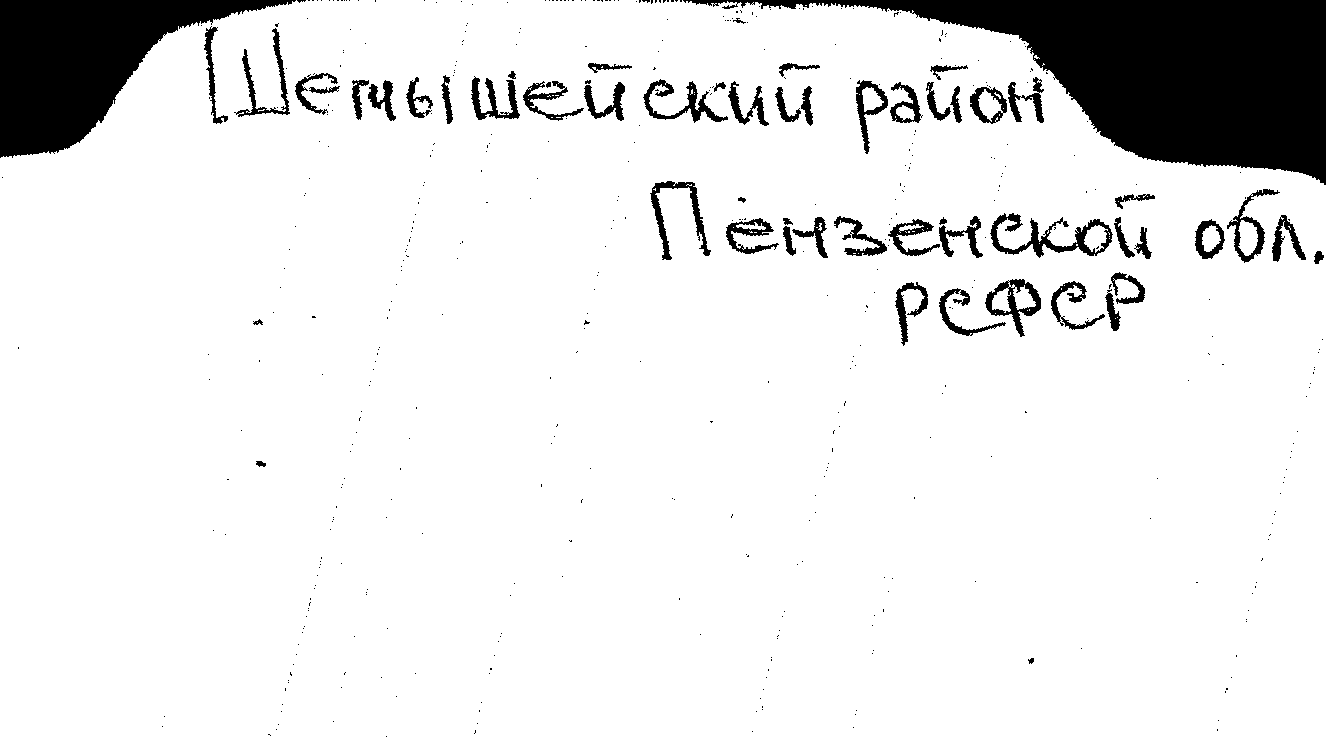 Шемышейский район
Пензенской обл.
РСФСР